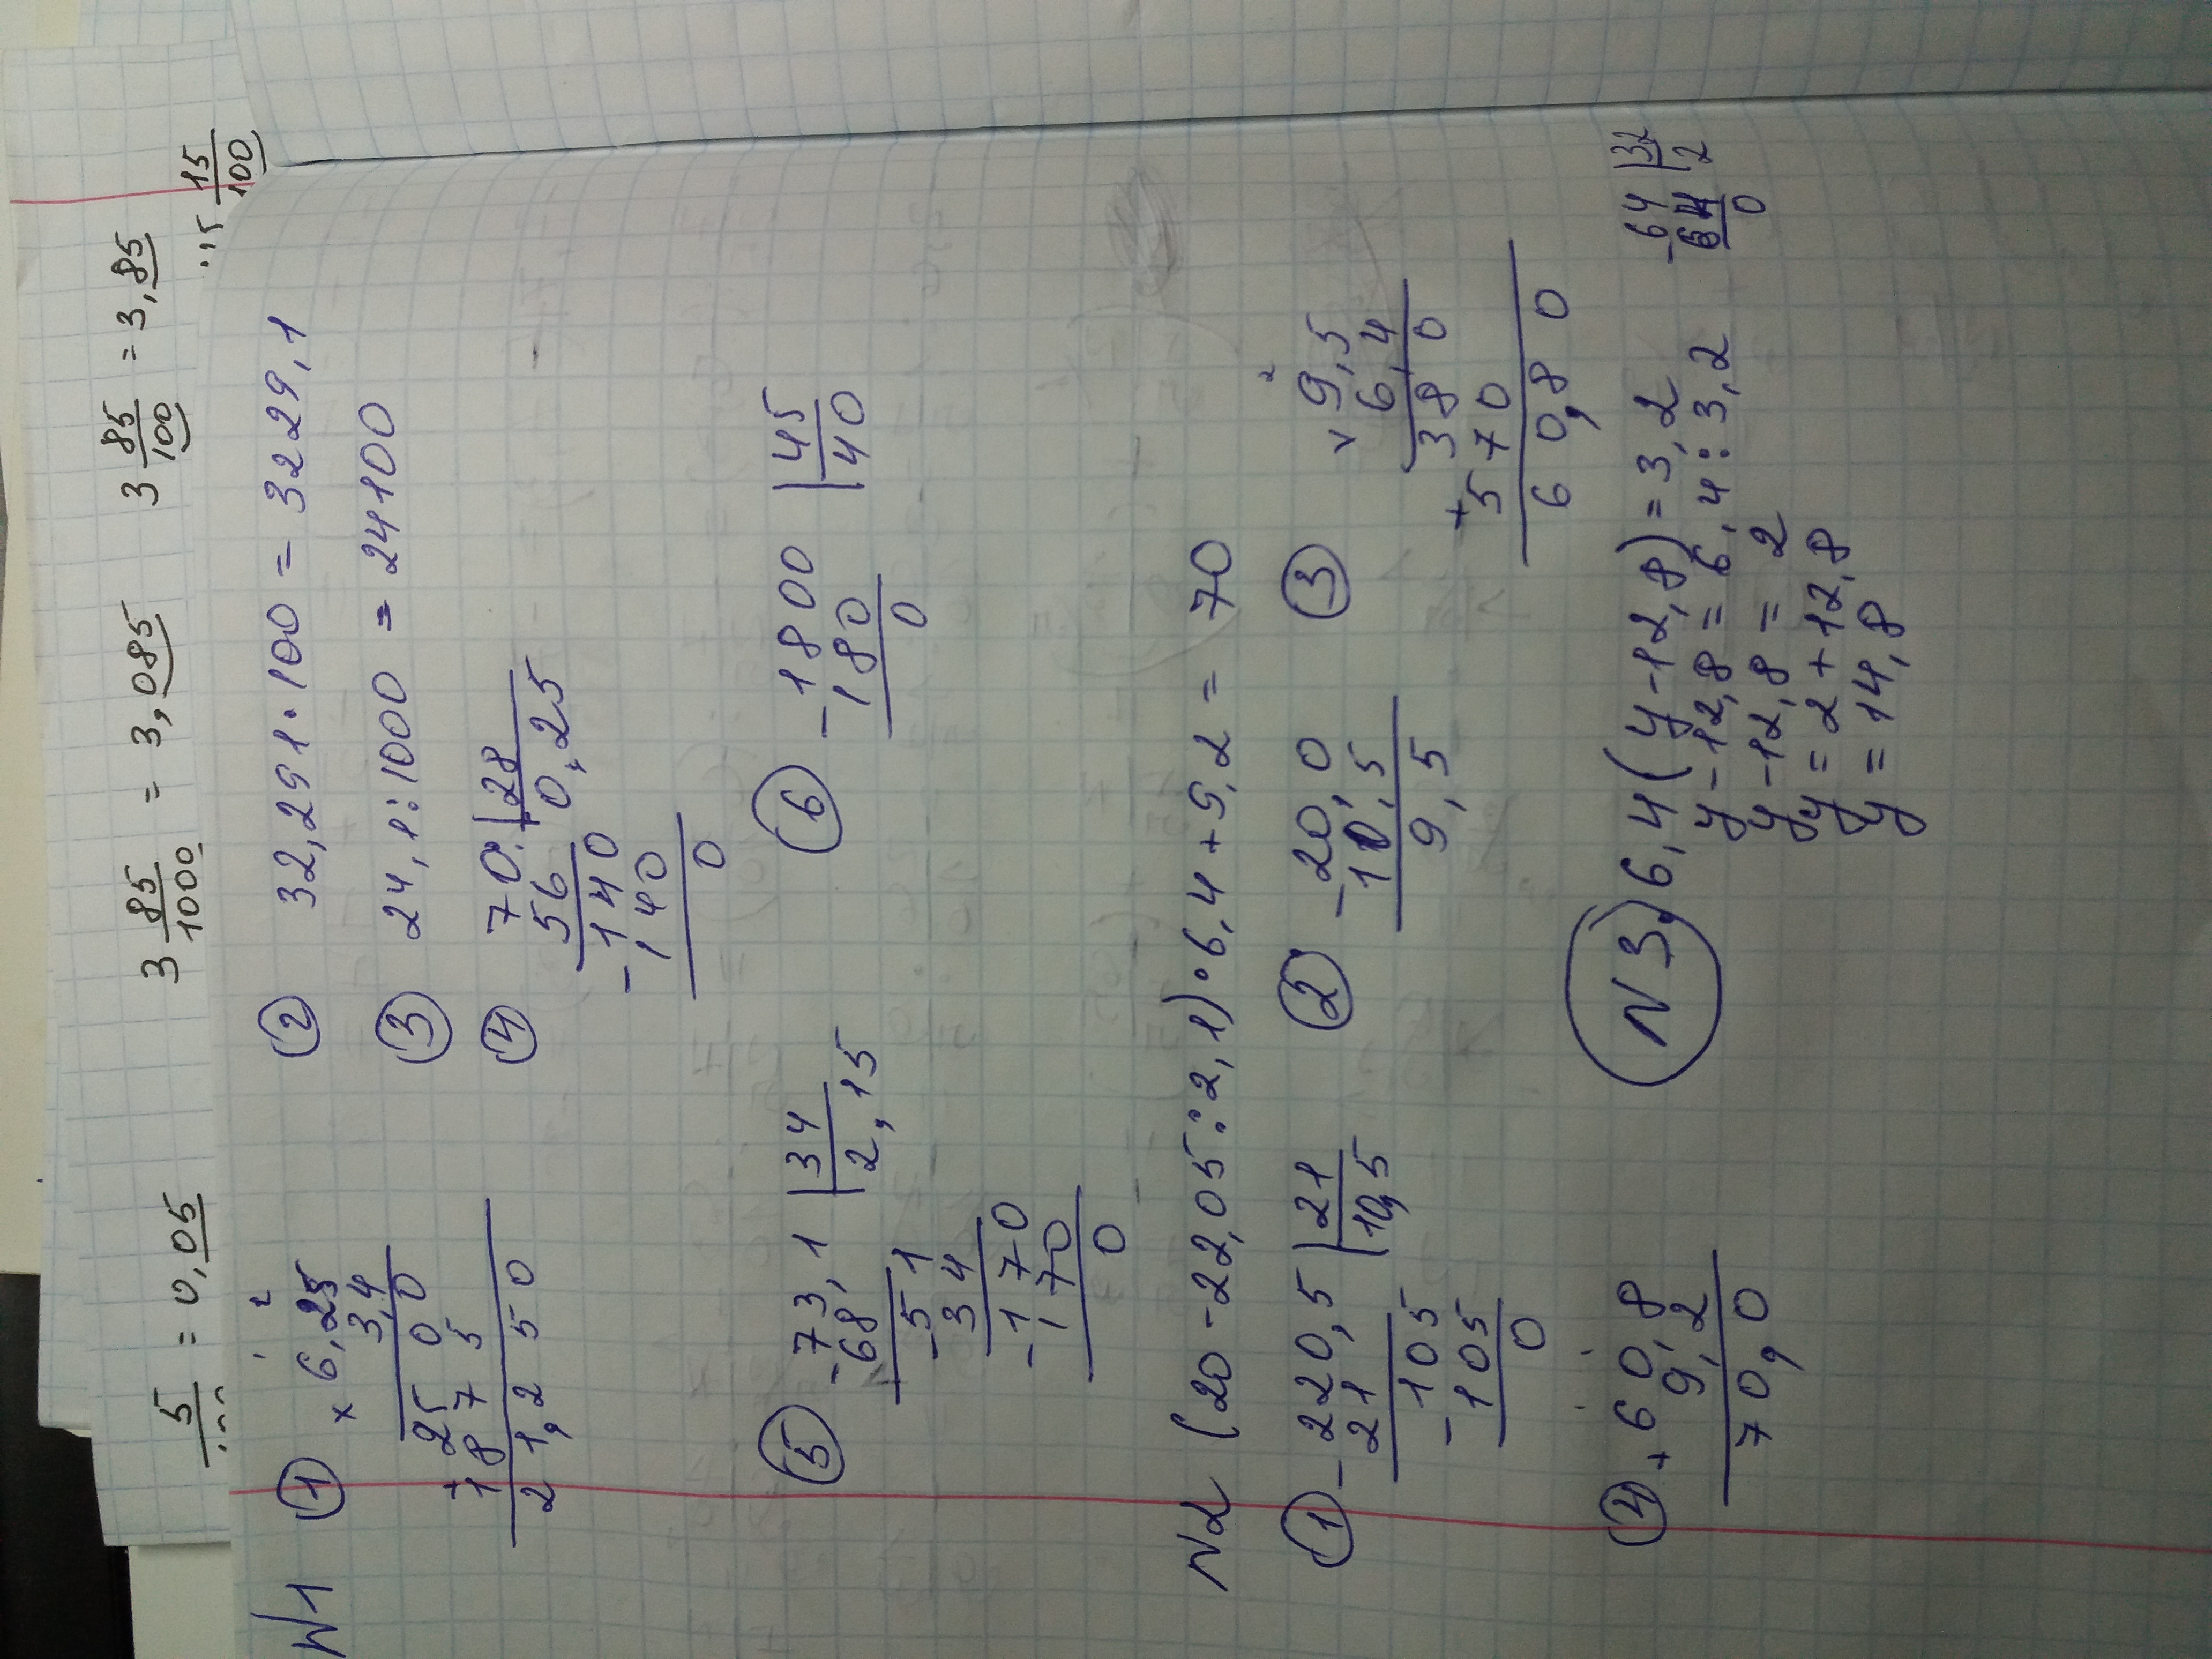 5/... = 0,05   3 85/1000 = 3,085   3 85/100 = 3,85
15/100
N1 ① × 6,25   ② 32,291 · 100 = 3229,1
3,4   ③ 24,1 : 1000 = 24100
2500
+ 1875
21,250
④ 70 | 28
56 | 0,25
- 140
140
0
⑤ - 73,1 | 34   ⑥ - 1800 | 45
68 | 2,15   180 | 40
- 51   0
34
- 170
170
0
N2 (20 - 22,05 : 2,1) · 6,4 + 9,2 = 70
① - 220,5 | 21   ② - 20,0   ③ × 9,5
21 | 10,5   10,5   6,4
- 105   9,5   380
105   + 570
0   60,80
④ + 60,8   N3, 6,4 (y - 12,8) = 3,2   - 64 | 32
9,2   y - 12,8 = 6,4 : 3,2   64 | 2
70,0   y - 12,8 = 2   0
y = 2 + 12,8
y = 14,8